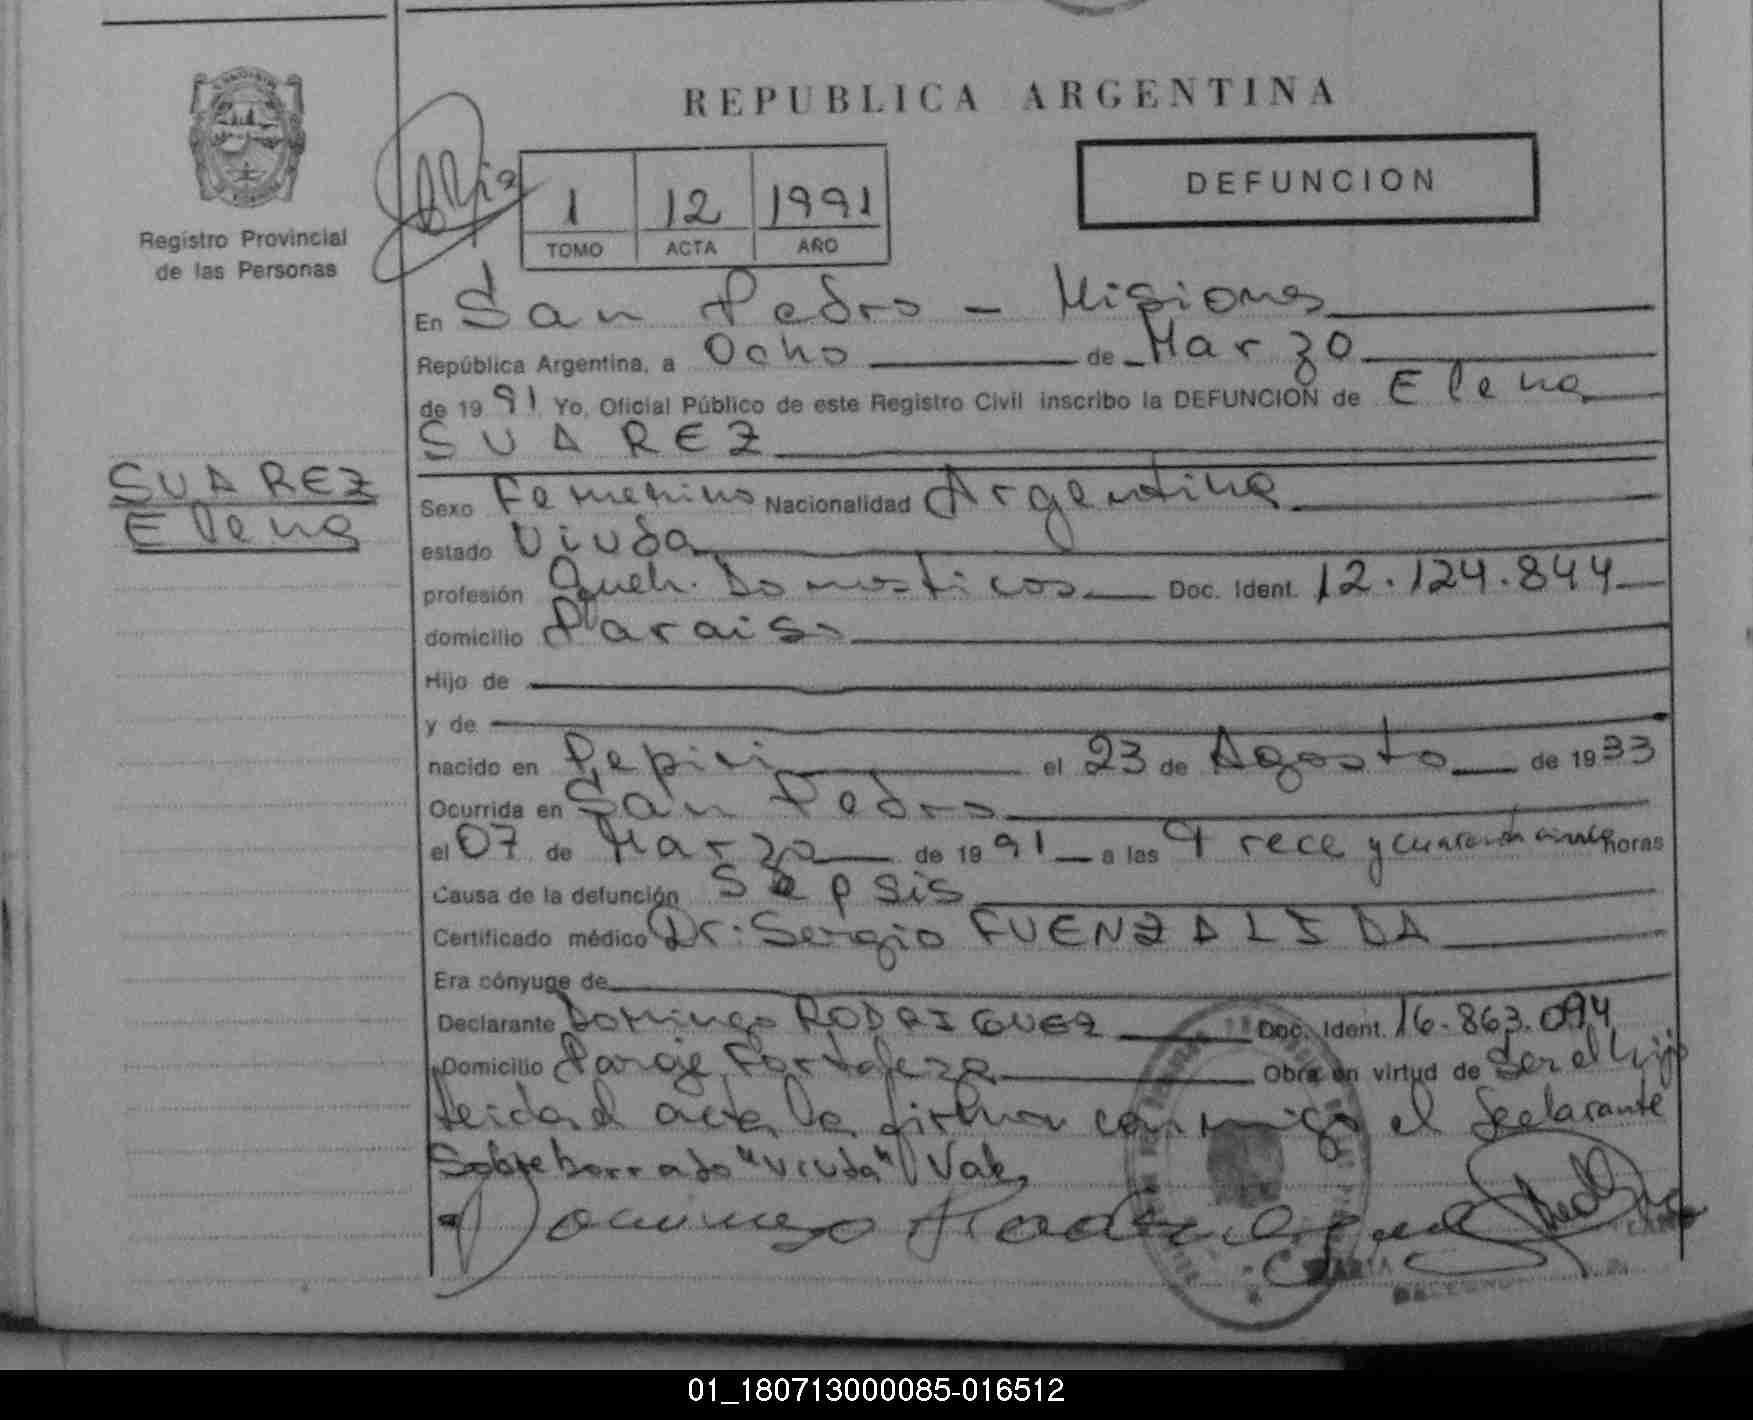 REPUBLICA ARGENTINA
DEFUNCION
Registro Provincial
de las Personas
1 12 1991
TOMO ACTA AÑO
En San Pedro - Misiones
República Argentina, a Ocho de Marzo
de 1991 Yo, Oficial Público de este Registro Civil inscribo la DEFUNCION de Elena
SUAREZ
SUAREZ
Elena
Sexo Femenino Nacionalidad Argentina
estado Viuda
profesión Queh. Domesticos Doc. Ident. 12.124.844
domicilio Paraiso
Hijo de
y de
nacido en Pepiri el 23 de Agosto de 1933
Ocurrida en San Pedro
el 07 de Marzo de 1991 a las Trece y cuarenta horas
Causa de la defunción Sepsis
Certificado médico Dr: Sergio FUENZALIDA
Era cónyuge de
Declarante Domingo RODRIGUEZ Doc. Ident. 16.863.094
Domicilio Paraje Fortaleza Obra en virtud de Ser el hijo
leida el acta la firma conmigo el declarante
Sobreborrado "viuda" Vale
Domingo Rodriguez
01_180713000085-016512